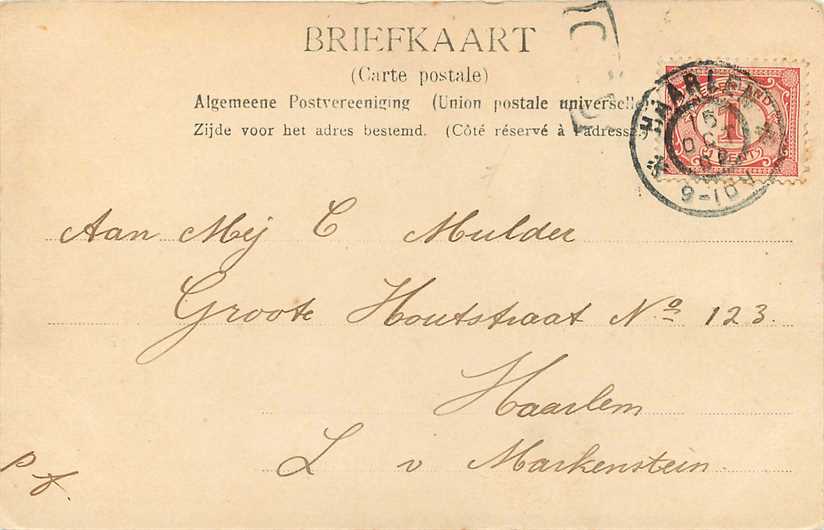 BRIEFKAART
(Carte postale)
Algemeene Postvereeniging (Union postale universelle
Zijde voor het adres bestemd. (Côté réservé à l'adresse
HAARLEM
15
9-10V
1
CENT
Aan Mej C Mulder
Groote Houtstraat No 123.
Haarlem
L v Markenstein.
p f.